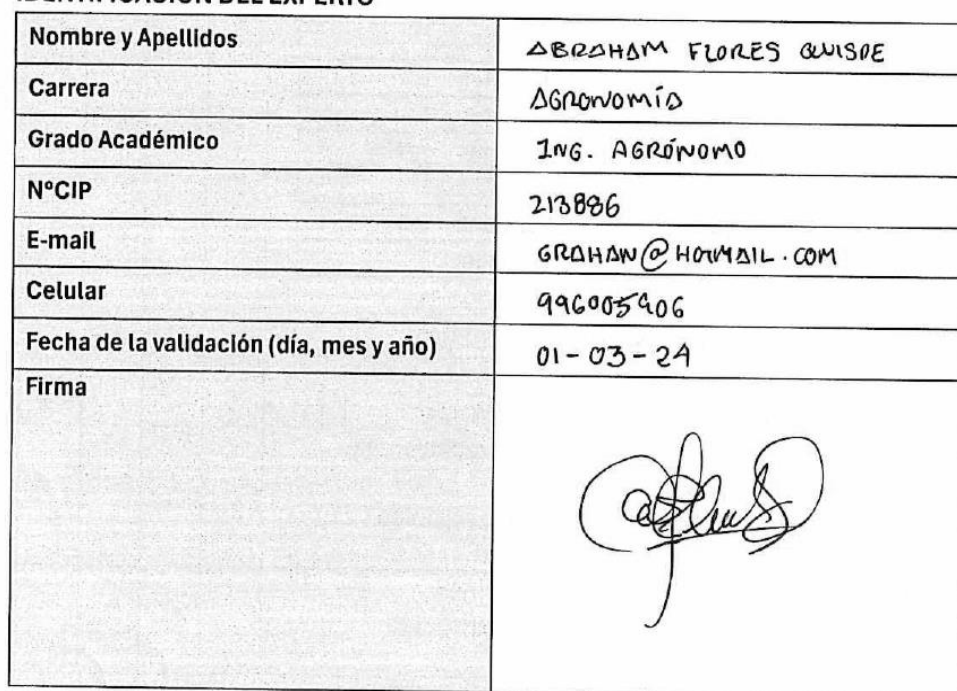 IDENTIFICACIÓN DEL EXPERTO
Nombre y Apellidos ABRAHAM FLORES QUISPE
Carrera AGRONOMÍA
Grado Académico ING. AGRÓNOMO
N°CIP 213886
E-mail GRAHAW@HOTMAIL.COM
Celular 996005906
Fecha de la validación (día, mes y año) 01-03-24
Firma